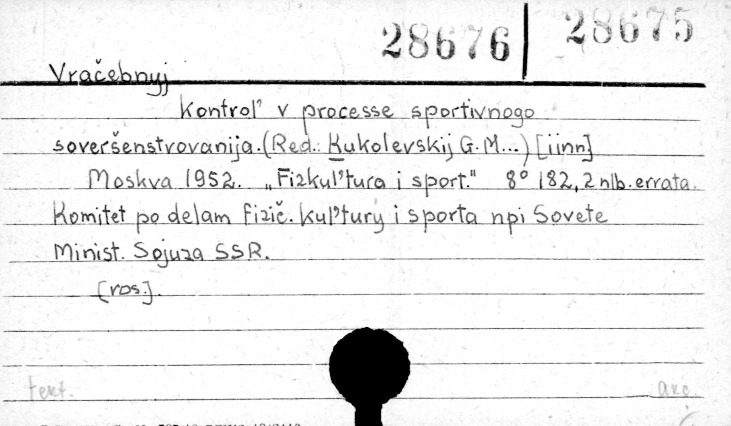 28676 | 28675
Vračebnyj
Kontrol' v processe sportivnogo
soveršenstvovanija. (Red.: Kukolevskij G.M...) [iinn]
Moskva 1952. „Fizkul'tura i sport." 8° 182, 2 nlb. errata.
Komitet po delam fizič. kul'tury i sporta npi Sovete
Minist. Sojuza SSR.
[ros.].
tekt. akc.